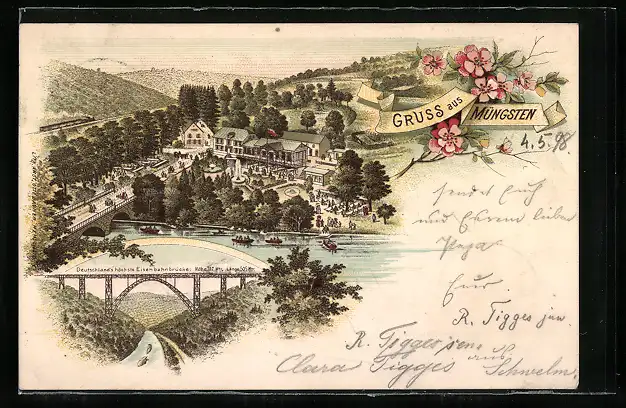 GRUSS aus MÜNGSTEN
4.5.98
Deutschlands höchste Eisenbahnbrücke: Höhe 107 Mtr. Länge 505 Mtr.
sendet Euch
und Eurem lieben
Papa
Eur.
R. Tigges jun.
R. Tigges sen.
aus
Clara Tigges Schwelm